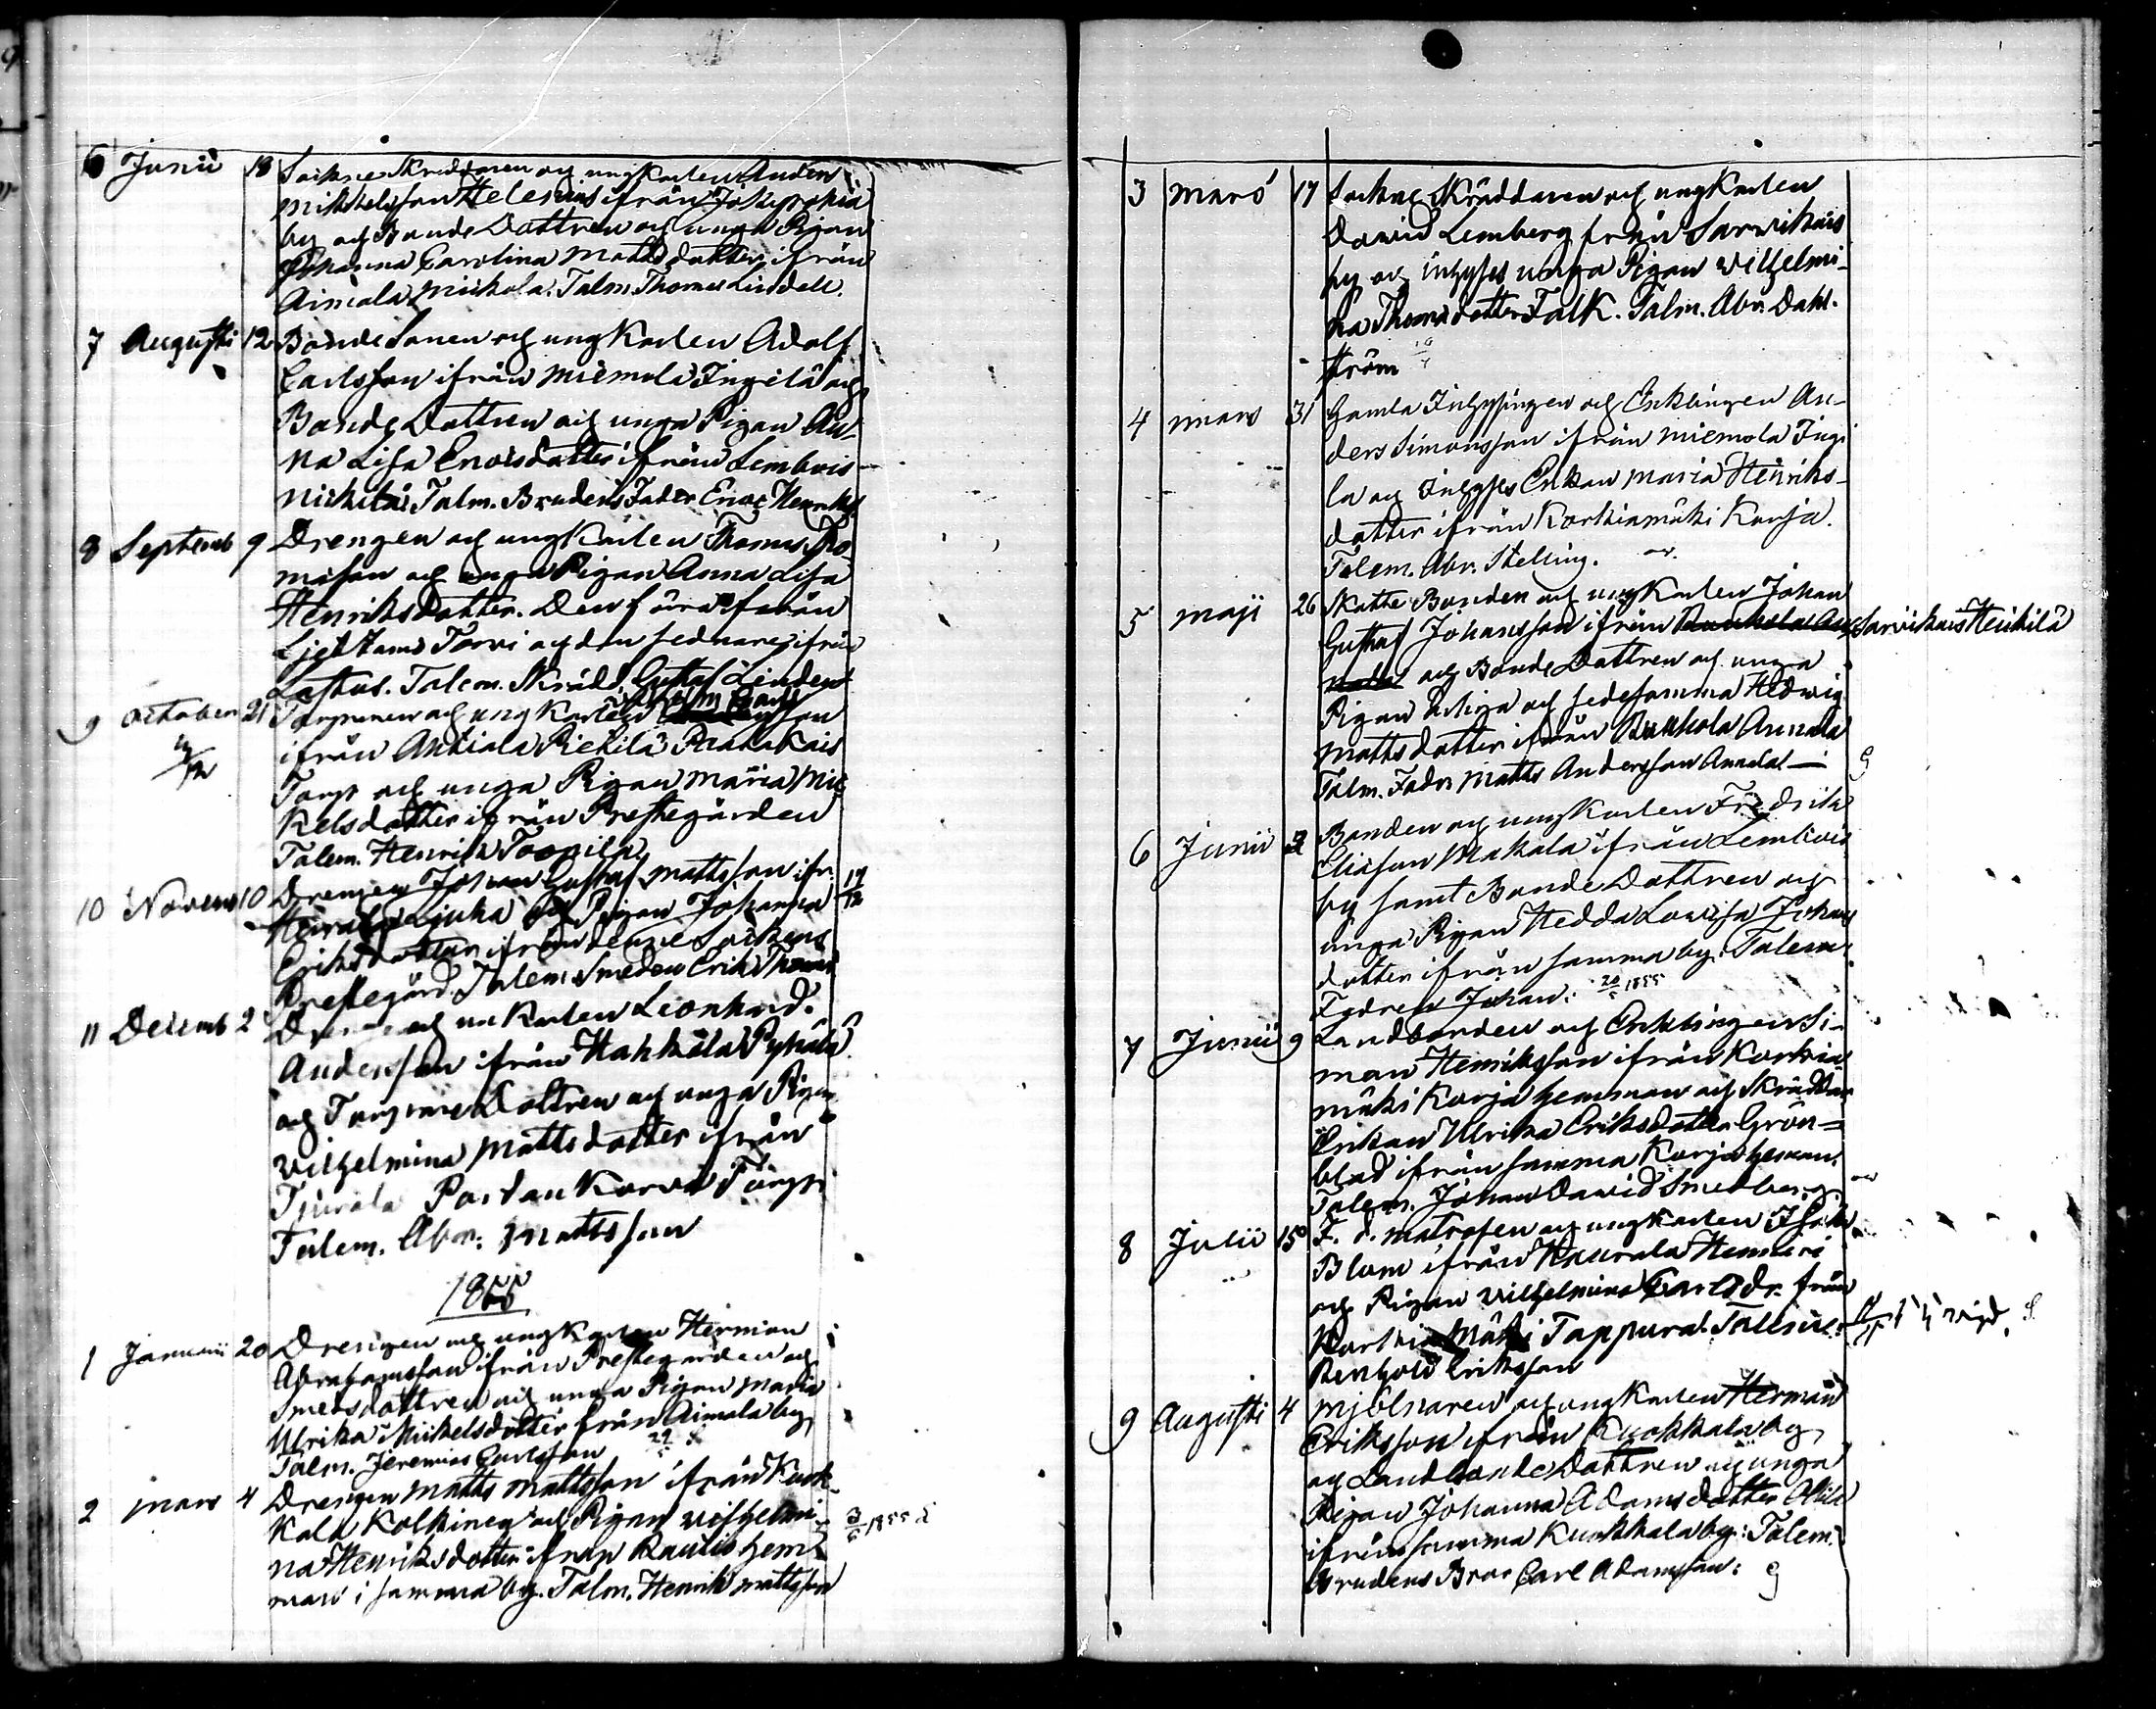 6 Junii 18 Sockne Skräddaren och ungKarlen Anders
Mikkelsson Helenius ifrån Jokiprohia
by och Bonde Dottren och unga Pigan
Johanna Carolina Mattsdotter ifrån
Aimala Mickola. Talm. Thomas Lindell.
7 Augusti 12 Bonde Sonen och ungKarlen Adolf
Carlsson ifrån Miemola Ingilä och
Bonde Dottren och unga Pigan An-
na Lisa Enocsdotter ifrån Lembois
Nickilä. Talm. Brudens Fader Enoc Henriks
8 Septemb 9 Drengen och ungKarlen Thomas Tho-
masson och unga Pigan Anna Lisa
Henriksdotter. Den förra ifrån
Torvi och den sednare ifrån
Lastus. Talem. Skrädd. Gustaf Linden
9 October 21 Torparen och ungKarlen son
ifrån Antiala Pietilä
Torp och unga Pigan Maria Mic
kelsdotter ifrån Prestegården
Talem. Henrik Toopila
10 Novemb 10 Drengen Johan Gustaf Mattsson ifr.
och Pigan Johanna 17/12
Eriksdotter ifrån denne Sockens
Prestegård. Talem. Smeden Erik Thomas
11 Decemb 2 Drengen och ungKarlen Leonhard
Andersson ifrån Hahkiala Pyhälä
och Torpare Dottren och unga Pigan
Vilhelmina Mattsdotter ifrån
Tjurala Portan Korva Torp
Talem. Abr. Mattsson
1855
1 Januarii 20 Drengen och ungKarlen Herman
Abrahamsson ifrån Prestegården och
Smedsdottren och unga Pigan Maria
Ulrika Mickelsdotter från Aimala by
Talm. Jeremias Carlsson
2 Mars 4 Drengen Matts Mattsson ifrån Kuck-
kala Kolkinen och Pigan Vilhelmi-
na Henriksdotter ifrån Rautis hem- 3/5 1855
man i samma by. Talm. Henrik Mattsson
3 Mars 17 Sockne Skräddaren och ungKarlen
David Lemberg från Sarvikais
by och inhyses unga Pigan Vilhelmi-
na Thomasdotter Falk. Talm. Abr. Dahl-
ström
4 Mars 31 Gamla Inhysingen och Enklingen An-
ders Simonsson ifrån Miemola Ingi
la och Inhyses Enkan Maria Henriks-
dotter ifrån Korkiamäki Korja.
Talem. Abr. Stelling.
5 Maji 26 Skatte Bonden och ungKarlen Johan
Gustaf Johansson ifrån Sarvikais Heickilä
och Bonde Dottren och unga
Pigan ärliga och sedesamma Hedvig
Mattsdotter ifrån Kukkola Annala
Talm. Fadr. Matts Andersson Annala
6 Junii 2 Bonden och ungKarlen Fredrik
Eliasson Makala ifrån Lembois
by samt Bonde Dottren och
unga Pigan Hedda Lovisa Johans
dotter ifrån samma by. Talem.
Fadren Johan. 20/5 1855
7 Junii 9 Landbonden och Enklingen Si-
mon Henriksson ifrån Korkia
mäki Korja hemman och Skräddar
Enkan Ulrika Eriksdotter Grön=
blad ifrån samma Korja heman.
Talem. Johan David Smedberg
8 Julii 15 F. d. Matrosen och ungKarlen Isak
Blom ifrån Haurala
och Pigan Vilhelmina Carlsdr. från
Korkiamäki Tappura. Talem.
Benhold Eriksson
9 Augusti 4 Mjölnaren och ungKarlen Herman
Eriksson ifrån Kuckkala by
och Landbonde Dottren och unga
Pigan Johanna Adamsdotter
ifrån samma Kuckkala by. Talem.
Brudens Bror Carl Adamsson.